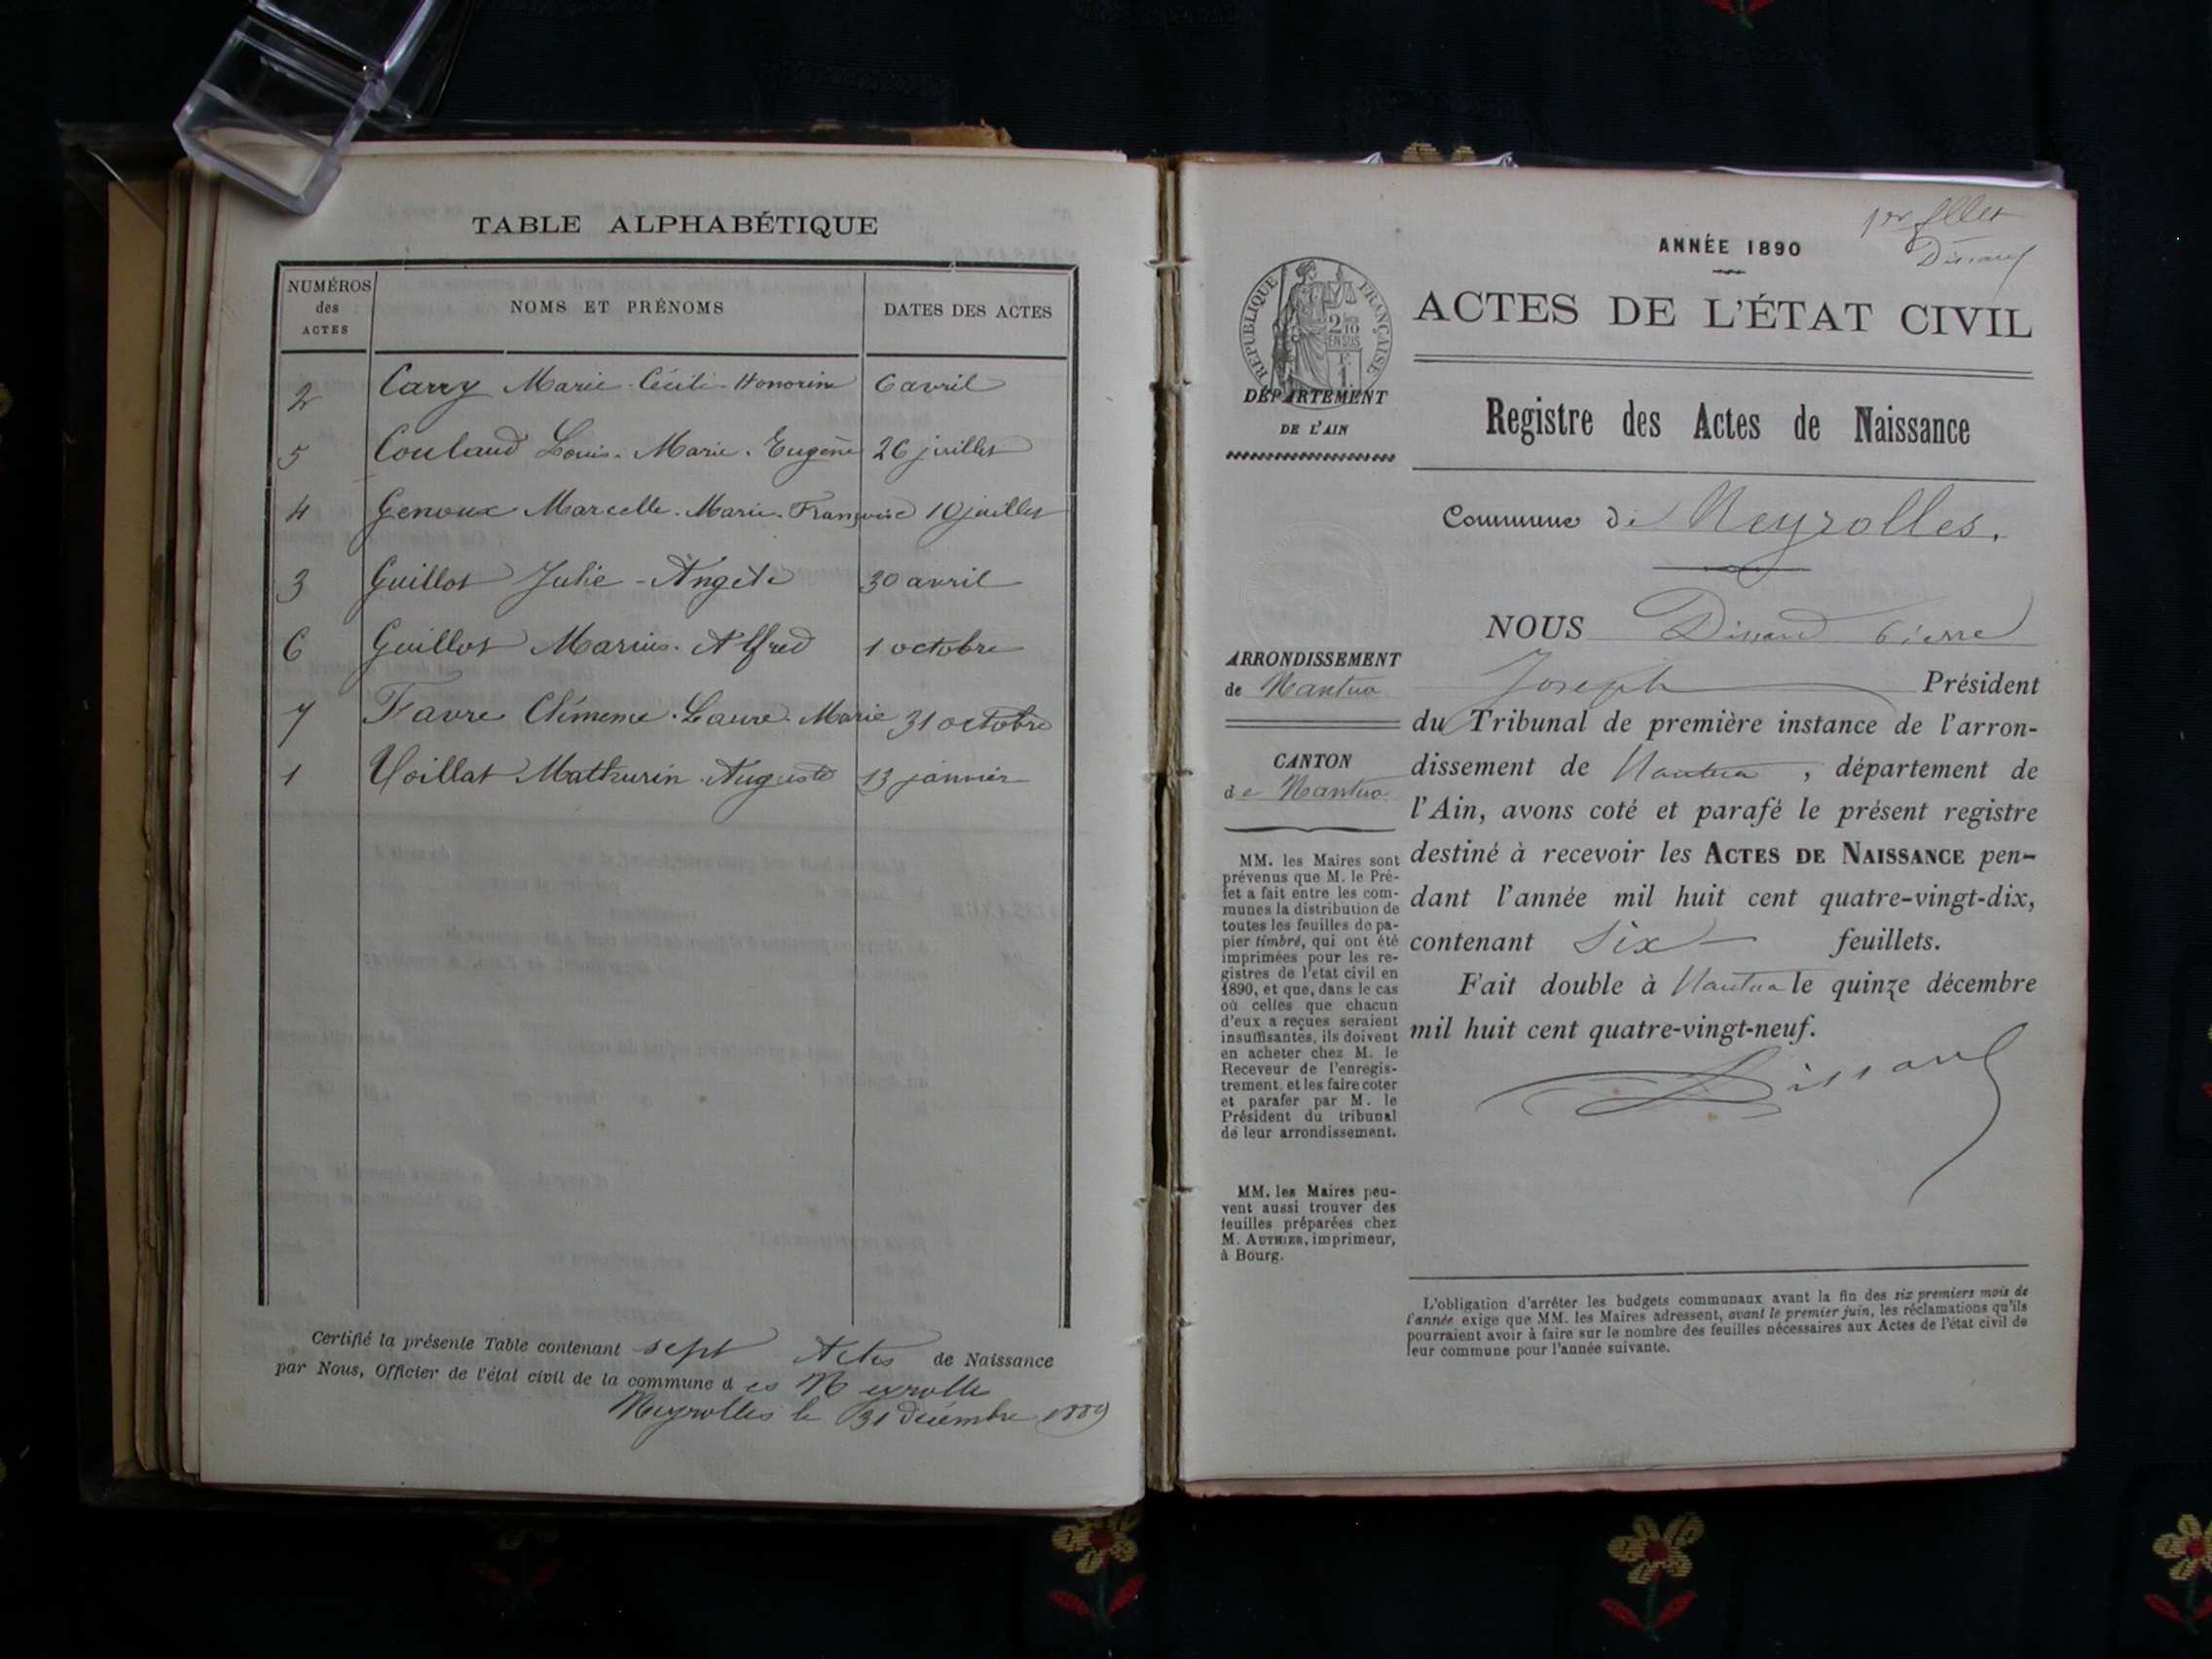 TABLE ALPHABÉTIQUE
NUMÉROS
des
ACTES
NOMS ET PRÉNOMS
DATES DES ACTES
2 Carry Marie-Cécile-Honorine 6 avril
5 Coulaud Louis-Marie-Eugène 26 juillet
4 Genoux Marcelle-Marie-Françoise 10 juillet
3 Guillot Julie-Angèle 30 avril
6 Guillot Marius-Alfred 1 octobre
7 Favre Clémence-Laure-Marie 31 octobre
1 Mathurin Auguste 13 janvier
Certifié la présente Table contenant sept Actes de Naissance
par Nous, Officier de l'état civil de la commune des Neyrolles
Neyrolles le 31 décembre 1889
1er
ANNÉE 1890
RÉPUBLIQUE FRANÇAISE
ACTES DE L'ÉTAT CIVIL
DÉPARTEMENT
DE L'AIN
Registre des Actes de Naissance
Commune de Neyrolles.
NOUS Pierre
Joseph Président
du Tribunal de première instance de l'arron-
dissement de Nantua, département de
l'Ain, avons coté et parafé le présent registre
destiné à recevoir les ACTES DE NAISSANCE pen-
dant l'année mil huit cent quatre-vingt-dix,
contenant six feuillets.
Fait double à Nantua le quinze décembre
mil huit cent quatre-vingt-neuf.
ARRONDISSEMENT
de Nantua
CANTON
de Nantua
MM. les Maires sont
prévenus que M. le Pré-
fet a fait entre les com-
munes la distribution de
toutes les feuilles de pa-
pier timbré, qui ont été
imprimées pour les re-
gistres de l'état civil en
1890, et que, dans le cas
où celles que chacun
d'eux a reçues seraient
insuffisantes, ils doivent
en acheter chez M. le
Receveur de l'enregis-
trement, et les faire coter
et parafer par M. le
Président du tribunal
de leur arrondissement.
MM. les Maires peu-
vent aussi trouver des
feuilles préparées chez
M. AUTHIER, imprimeur,
à Bourg.
L'obligation d'arrêter les budgets communaux avant la fin des six premiers mois de
l'année exige que MM. les Maires adressent, avant le premier juin, les réclamations qu'ils
pourraient avoir à faire sur le nombre des feuilles nécessaires aux Actes de l'état civil de
leur commune pour l'année suivante.